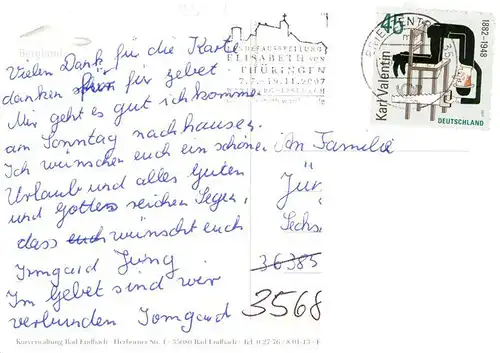 Vielen Dank für die Karte
danken für gebet.
Mir geht es gut ich komme
am Sonntag nachhausen.
Ich wünschen euch ein schöne
Urlaub und alles Guten
und Gottes reichen Segen,
dass wünscht euch
Irmgard Jung
Im Gebet sind wir
verbunden Irmgard
An Familie
Jür
Sechs
36385
3568
LANDESAUSSTELLUNG
ELISABETH von
THÜRINGEN
7.7.-19.11.2007
BRIEFZENTRUM 35
45
Karl Valentin
1882-1948
DEUTSCHLAND
Kurverwaltung Bad Endbach · Herborner Str. 1 · 35080 Bad Endbach · Tel. 0 27 76 / 8 01-13 · F